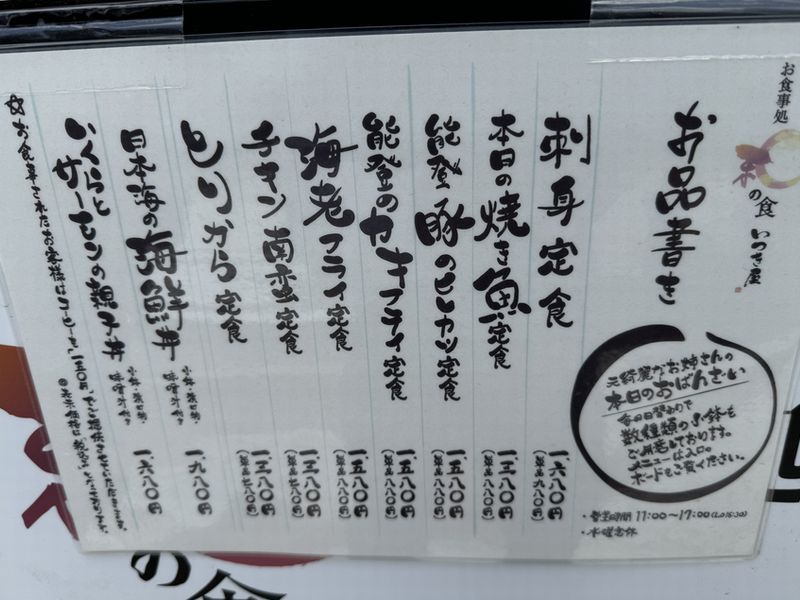 お食事処
和の食 いつき屋
お品書き
元綺麗なお姉さんの
本日のおばんざい
毎日日替わりで
数種類の小鉢を
ご用意しております。
メニューは入口の
ボードをご覧ください。
・営業時間 11:00〜17:00(L.O16:30)
・水曜定休
刺身定食 一、六八〇円
(単品九八〇円)
本日の焼き魚定食 一、三八〇円
(単品八八〇円)
能登豚のヒレカツ定食 一、五八〇円
(単品八八〇円)
能登のカキフライ定食 一、五八〇円
(単品八八〇円)
海老フライ定食 一、三八〇円
(単品八八〇円)
チキン南蛮定食 一、三八〇円
(単品七八〇円)
とりから定食 一、二八〇円
(単品七八〇円)
日本海の海鮮丼 小鉢・漬け物・味噌汁付き 一、九八〇円
いくらとサーモンの親子丼 小鉢・漬け物・味噌汁付き 一、六八〇円
☆お食事されたお客様はコーヒーを一五〇円でご提供させていただきます。
◎表示価格は税込となっております。
の食